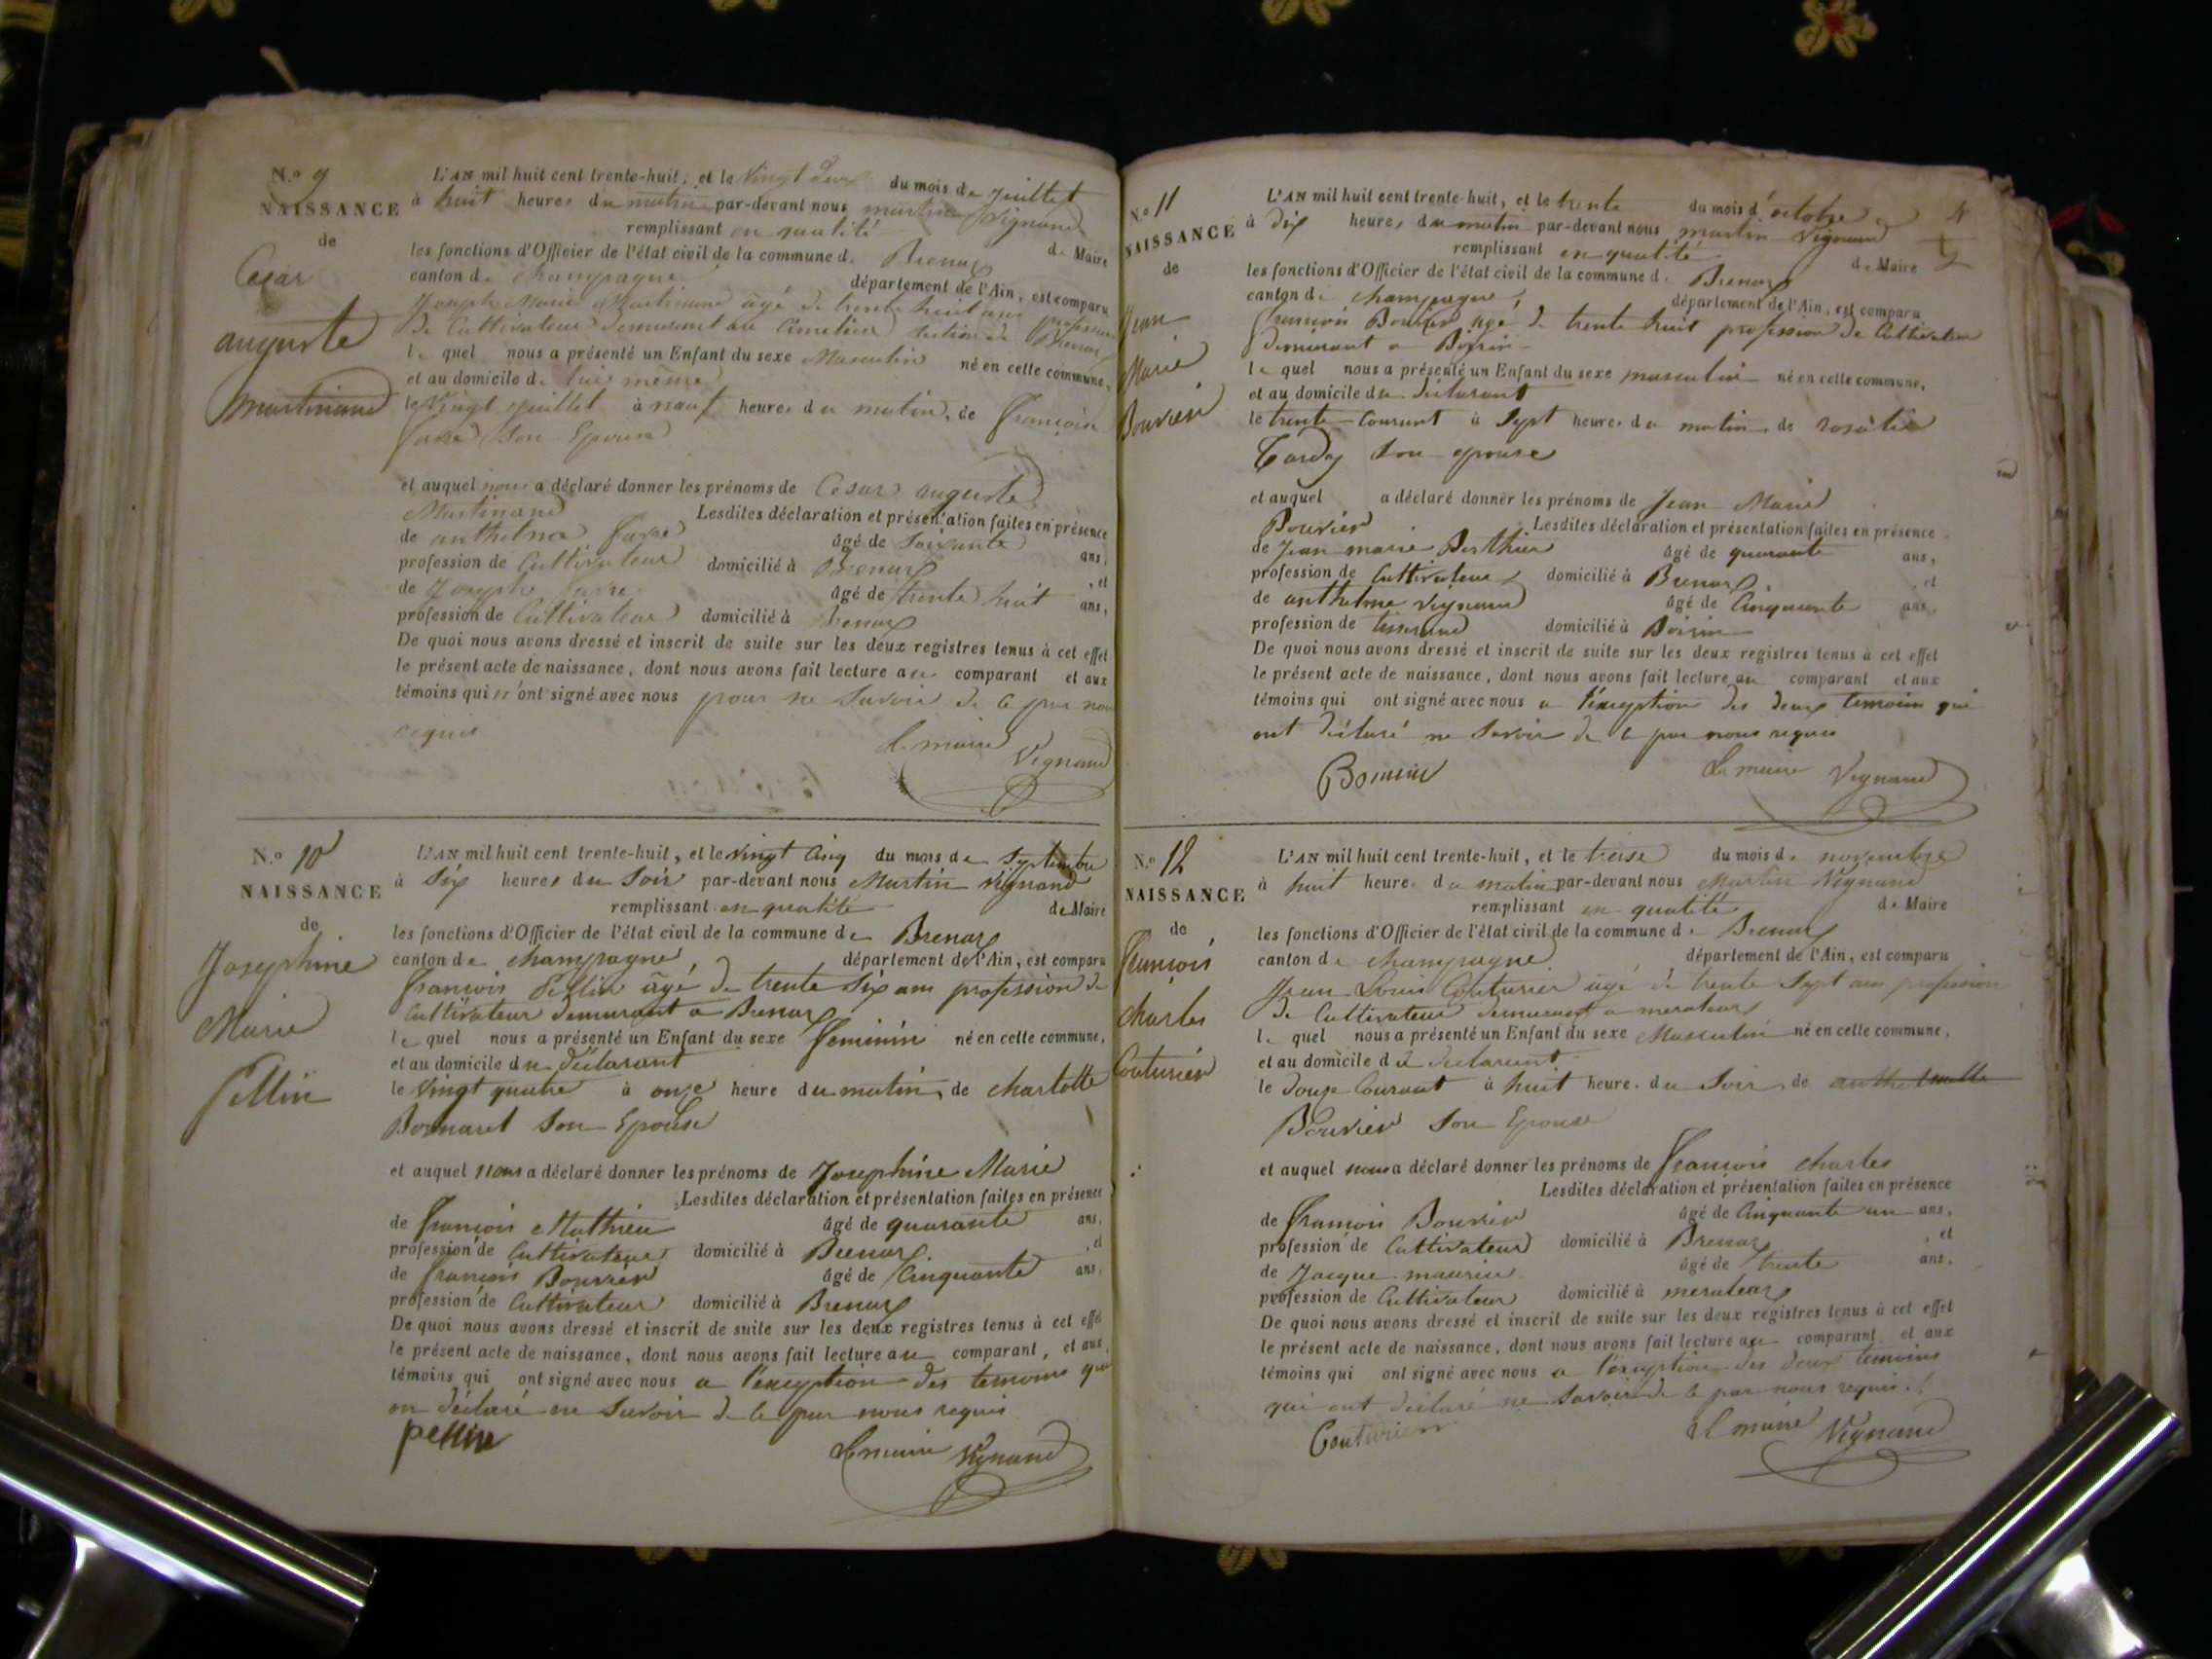 N.o 9
NAISSANCE
de
Cesar
auguste
Martinand
L'AN mil huit cent trente-huit, et le Vingt deux du mois de Juillet
à huit heures du matin par-devant nous martin Vignand
remplissant en qualité de Maire
les fonctions d'Officier de l'état civil de la commune de Brenaz
canton de Champagne département de l'Ain, est comparu
Joseph Marie Martinand âgé de trente huit ans profession
de Cultivateur demeurant au Cimetière section de Brenaz
le quel nous a présenté un Enfant du sexe Masculin né en cette commune,
et au domicile de lui même
le Vingt Juillet à neuf heures du matin, de François
favre son Epouse
et auquel nous a déclaré donner les prénoms de Cesar auguste
Martinand Lesdites déclaration et présentation faites en présence
de anthelme favre âgé de Soixante ans,
profession de Cultivateur domicilié à Brenaz, et
de Joseph favre âgé de trente huit ans,
profession de Cultivateur domicilié à Brenaz
De quoi nous avons dressé et inscrit de suite sur les deux registres tenus à cet effet
le présent acte de naissance, dont nous avons fait lecture au comparant et aux
témoins qui n'ont signé avec nous pour ne Savoir de ce par nous
requis
Le maire Vignand
N.o 10
NAISSANCE
de
Josephine
Marie
Pellin
L'AN mil huit cent trente-huit, et le Vingt Cinq du mois de Septembre
à Six heures du Soir par-devant nous Martin Vignand
remplissant en qualité de Maire
les fonctions d'Officier de l'état civil de la commune de Brenaz
canton de champagne, département de l'Ain, est comparu
François Pellin âgé de trente Six ans profession de
Cultivateur demeurant a Brenaz
le quel nous a présenté un Enfant du sexe feminin né en cette commune,
et au domicile du déclarant
le Vingt quatre à onze heure du matin, de charlotte
Bornaret Son Epouse
et auquel nous a déclaré donner les prénoms de Josephine Marie
Lesdites déclaration et présentation faites en présence
de François Mathieu âgé de quarante ans,
profession de Cultivateur domicilié à Brenaz, et
de François Bouvier âgé de Cinquante ans,
profession de Cultivateur domicilié à Brenaz
De quoi nous avons dressé et inscrit de suite sur les deux registres tenus à cet effet
le présent acte de naissance, dont nous avons fait lecture au comparant, et aux
témoins qui ont signé avec nous a l'exception des temoins qui
on déclaré ne Savoir de ce par nous requis
pellin Le maire Vignand
N.o 11
NAISSANCE
de
Jean
Marie
Bouvier
L'AN mil huit cent trente-huit, et le trente du mois d'octobre
à dix heures du matin par-devant nous martin Vignand
remplissant en qualité de Maire
les fonctions d'Officier de l'état civil de la commune de Brenaz
canton de champagne, département de l'Ain, est comparu
François Bouvier agé de trente huit profession de Cultivateur
demeurant a
le quel nous a présenté un Enfant du sexe masculin né en cette commune,
et au domicile du déclarant
le trente Courant à Sept heures du matin, de rosalie
Tardy Son epouse
et auquel a déclaré donner les prénoms de Jean Marie
Bouvier Lesdites déclaration et présentation faites en présence
de Jean marie Berthier âgé de quarante ans,
profession de Cultivateur domicilié à Brenaz, et
de anthelme Vignand âgé de Cinquante ans,
profession de tisserand domicilié à
De quoi nous avons dressé et inscrit de suite sur les deux registres tenus à cet effet
le présent acte de naissance, dont nous avons fait lecture au comparant et aux
témoins qui ont signé avec nous a l'exception des deux temoins qui
ont déclaré ne Savoir de ce par nous requis
Bouvier Le maire Vignand
N.o 12
NAISSANCE
de
François
charles
Couturier
L'AN mil huit cent trente-huit, et le treise du mois de novembre
à huit heure du matin par-devant nous Martin Vignand
remplissant en qualité de Maire
les fonctions d'Officier de l'état civil de la commune de Brenaz
canton de champagne département de l'Ain, est comparu
Jean Louis Couturier agé de trente Sept ans profession
de Cultivateur demeurant a meraleaz
le quel nous a présenté un Enfant du sexe Masculin né en cette commune,
et au domicile du déclarant
le douze Courant à huit heure du Soir, de anthelmette
Bouvier Son Epouse
et auquel nous a déclaré donner les prénoms de François charles
Lesdites déclaration et présentation faites en présence
de François Bouvier âgé de Cinquante un ans,
profession de Cultivateur domicilié à Brenaz, et
de Jacque maurier âgé de trente ans,
profession de Cultivateur domicilié à meraleaz
De quoi nous avons dressé et inscrit de suite sur les deux registres tenus à cet effet
le présent acte de naissance, dont nous avons fait lecture au comparant et aux
témoins qui ont signé avec nous a l'exception des deux temoins
qui ont déclaré ne Savoir de ce par nous requis.
Couturier Le maire Vignand